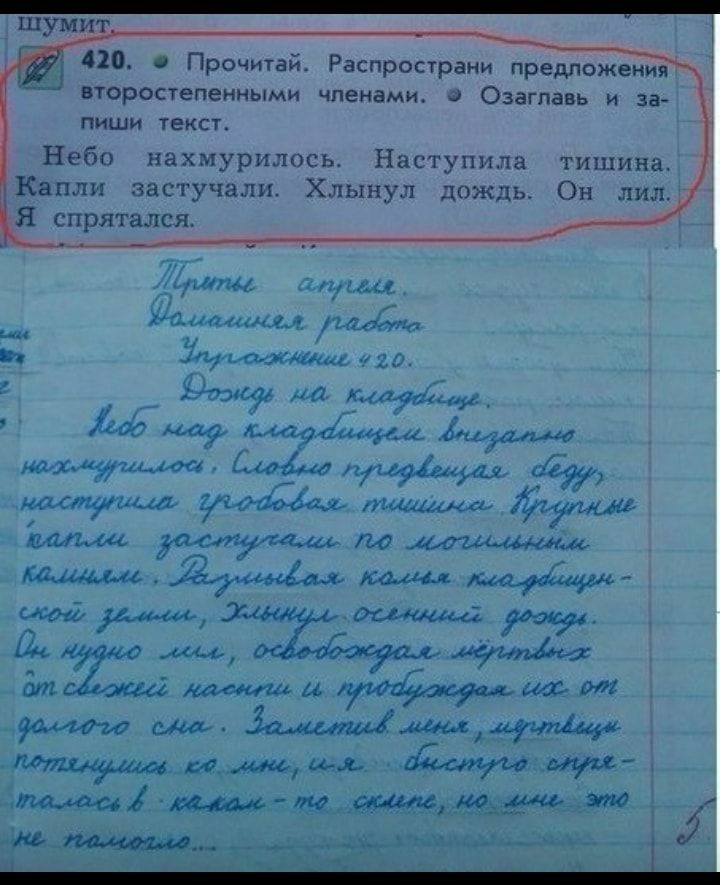 шумит.
420. Прочитай. Распространи предложения
второстепенными членами. Озаглавь и за-
пиши текст.
Небо нахмурилось. Наступила тишина.
Капли застучали. Хлынул дождь. Он лил.
Я спрятался.
Третье апреля.
Домашняя работа
Упражнение 420.
Дождь на кладбище.
Небо над кладбищем внезапно
нахмурилось. Словно предвещая беду,
наступила гробовая тишина. Крупные
капли застучали по могильным
камням. Размывая комья кладбищен-
ской земли, хлынул осенний дождь.
Он нудно лил, освобождая мёртвых
от свежей насыпи и пробуждая их от
долгого сна. Заметив меня, мертвецы
потянулись ко мне, и я быстро спря-
талась в каком-то склепе, но мне это
не помогло...
5